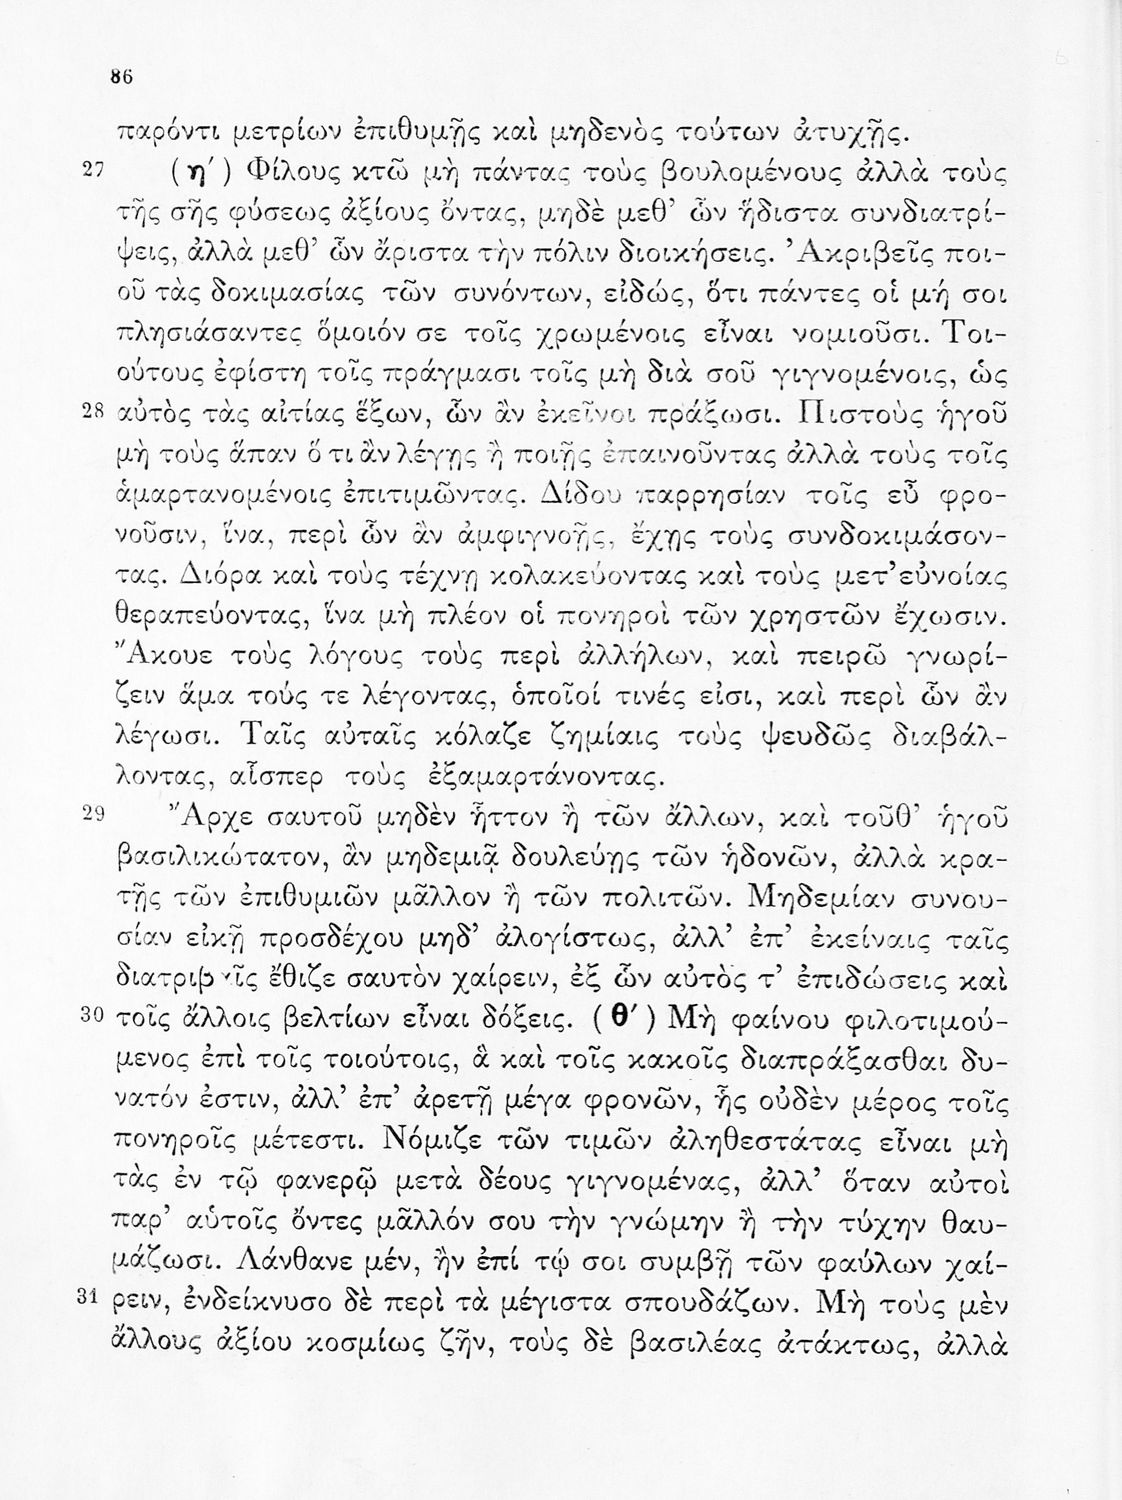 86
παρόντι μετρίων ἐπιθυμῇς καὶ μηδενὸς τούτων ἀτυχῇς.
27 (η′) Φίλους κτῶ μὴ πάντας τοὺς βουλομένους ἀλλὰ τοὺς
τῆς σῆς φύσεως ἀξίους ὄντας, μηδὲ μεθ’ ὧν ἥδιστα συνδιατρί-
ψεις, ἀλλὰ μεθ’ ὧν ἄριστα τὴν πόλιν διοικήσεις. Ἀκριβεῖς ποι-
οῦ τὰς δοκιμασίας τῶν συνόντων, εἰδώς, ὅτι πάντες οἱ μή σοι
πλησιάσαντες ὅμοιόν σε τοῖς χρωμένοις εἶναι νομιοῦσι. Τοι-
ούτους ἐφίστη τοῖς πράγμασι τοῖς μὴ διὰ σοῦ γιγνομένοις, ὡς
28 αὐτὸς τὰς αἰτίας ἕξων, ὧν ἂν ἐκεῖνοι πράξωσι. Πιστοὺς ἡγοῦ
μὴ τοὺς ἅπαν ὅ τι ἂν λέγῃς ἢ ποιῇς ἐπαινοῦντας ἀλλὰ τοὺς τοῖς
ἁμαρτανομένοις ἐπιτιμῶντας. Δίδου παρρησίαν τοῖς εὖ φρο-
νοῦσιν, ἵνα, περὶ ὧν ἂν ἀμφιγνοῇς, ἔχῃς τοὺς συνδοκιμάσον-
τας. Διόρα καὶ τοὺς τέχνῃ κολακεύοντας καὶ τοὺς μετ’εὐνοίας
θεραπεύοντας, ἵνα μὴ πλέον οἱ πονηροὶ τῶν χρηστῶν ἔχωσιν.
Ἄκουε τοὺς λόγους τοὺς περὶ ἀλλήλων, καὶ πειρῶ γνωρί-
ζειν ἅμα τούς τε λέγοντας, ὁποῖοί τινές εἰσι, καὶ περὶ ὧν ἂν
λέγωσι. Ταῖς αὐταῖς κόλαζε ζημίαις τοὺς ψευδῶς διαβάλ-
λοντας, αἷσπερ τοὺς ἐξαμαρτάνοντας.
29 Ἄρχε σαυτοῦ μηδὲν ἧττον ἢ τῶν ἄλλων, καὶ τοῦθ’ ἡγοῦ
βασιλικώτατον, ἂν μηδεμιᾷ δουλεύῃς τῶν ἡδονῶν, ἀλλὰ κρα-
τῇς τῶν ἐπιθυμιῶν μᾶλλον ἢ τῶν πολιτῶν. Μηδεμίαν συνου-
σίαν εἰκῇ προσδέχου μηδ’ ἀλογίστως, ἀλλ’ ἐπ’ ἐκείναις ταῖς
διατριβαῖς ἔθιζε σαυτὸν χαίρειν, ἐξ ὧν αὐτός τ’ ἐπιδώσεις καὶ
30 τοῖς ἄλλοις βελτίων εἶναι δόξεις. (θ′) Μὴ φαίνου φιλοτιμού-
μενος ἐπὶ τοῖς τοιούτοις, ἃ καὶ τοῖς κακοῖς διαπράξασθαι δυ-
νατόν ἐστιν, ἀλλ’ ἐπ’ ἀρετῇ μέγα φρονῶν, ἧς οὐδὲν μέρος τοῖς
πονηροῖς μέτεστι. Νόμιζε τῶν τιμῶν ἀληθεστάτας εἶναι μὴ
τὰς ἐν τῷ φανερῷ μετὰ δέους γιγνομένας, ἀλλ’ ὅταν αὐτοὶ
παρ’ αὑτοῖς ὄντες μᾶλλόν σου τὴν γνώμην ἢ τὴν τύχην θαυ-
μάζωσι. Λάνθανε μέν, ἢν ἐπί τῴ σοι συμβῇ τῶν φαύλων χαί-
31 ρειν, ἐνδείκνυσο δὲ περὶ τὰ μέγιστα σπουδάζων. Μὴ τοὺς μὲν
ἄλλους ἀξίου κοσμίως ζῆν, τοὺς δὲ βασιλέας ἀτάκτως, ἀλλὰ